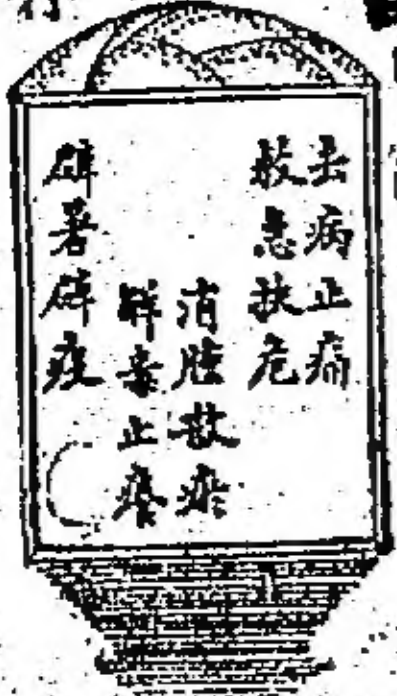 去病止痛
救急扶危
消腫散瘀
解毒止癢
辟暑辟疫